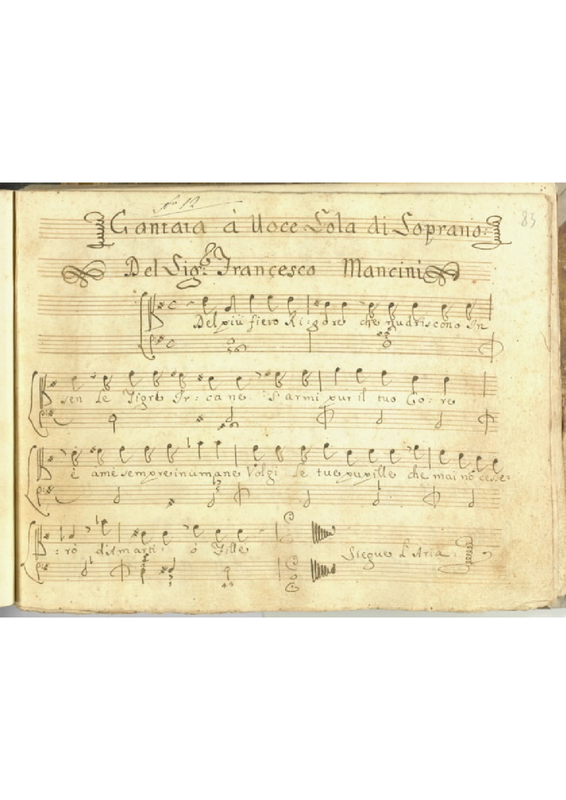 No 12
83
Cantata à Uoce Sola di Soprano:
Del Sigre Francesco Mancini
Del più fiero Rigore che nudriscono in
sen Le Tigre Ir: cane S'armi pur il tuo Co: re
è àme sempre inumane Volgi Le tue pupille che mai nò cesse:
:rò d'Amarti ò Fille Siegue L'Aria